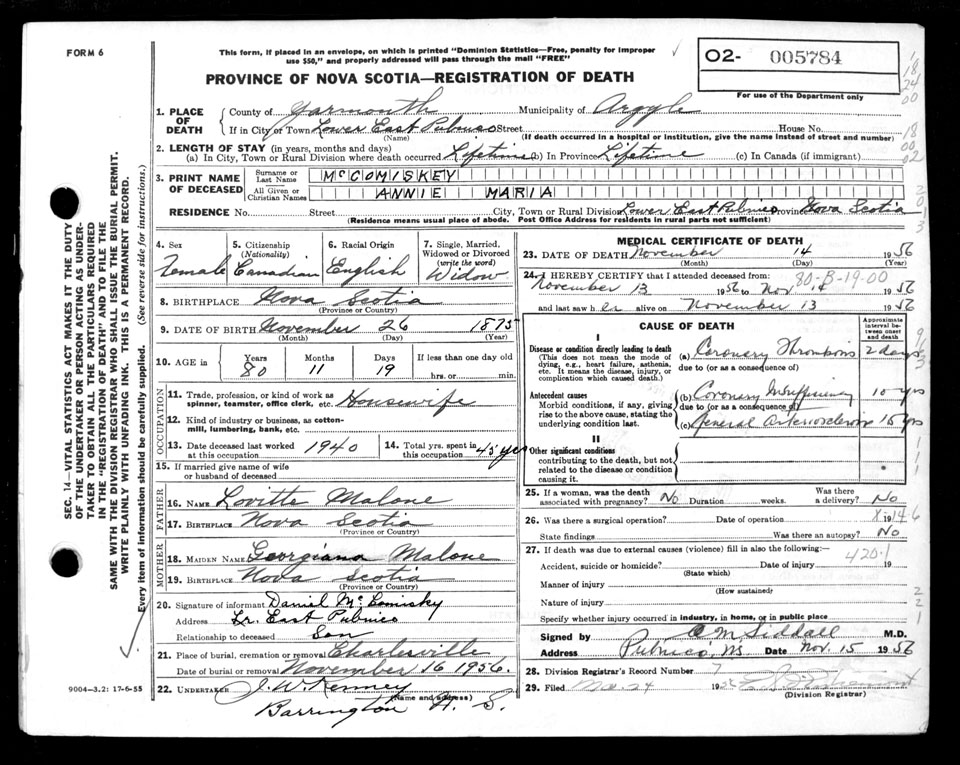 FORM 6
This form, if placed in an envelope, on which is printed "Dominion Statistics—Free, penalty for improper
use $50," and properly addressed will pass through the mail "FREE"
PROVINCE OF NOVA SCOTIA—REGISTRATION OF DEATH
O2- 005784
For use of the Department only
SEC. 14—VITAL STATISTICS ACT MAKES IT THE DUTY
OF THE UNDERTAKER OR PERSON ACTING AS UNDER-
TAKER TO OBTAIN ALL THE PARTICULARS REQUIRED
IN THE "REGISTRATION OF DEATH" AND TO FILE THE
SAME WITH THE DIVISION REGISTRAR WHO SHALL ISSUE THE BURIAL PERMIT.
WRITE PLAINLY WITH UNFADING INK. THIS IS A PERMANENT RECORD.
Every item of information should be carefully supplied. (See reverse side for instructions.)
1. PLACE OF DEATH
County of Yarmouth Municipality of Argyle
If in City or Town Lower East Pubnico Street House No.
(Name) (If death occurred in a hospital or institution, give the name instead of street and number)
2. LENGTH OF STAY (in years, months and days)
(a) In City, Town or Rural Division where death occurred Lifetime (b) In Province Lifetime (c) In Canada (if immigrant)
3. PRINT NAME OF DECEASED
Surname or Last Name McCOMISKEY
All Given or Christian Names ANNIE MARIA
RESIDENCE No. Street City, Town or Rural Division Lower East Pubnico Province Nova Scotia
(Residence means usual place of abode. Post Office Address for residents in rural parts not sufficient)
4. Sex Female
5. Citizenship (Nationality) Canadian
6. Racial Origin English
7. Single, Married, Widowed or Divorced (write the word) Widow
8. BIRTHPLACE Nova Scotia
(Province or Country)
9. DATE OF BIRTH November 26 1875
(Month) (Day) (Year)
10. AGE in Years 80 Months 11 Days 19 If less than one day old
hrs. or min.
OCCUPATION
11. Trade, profession, or kind of work as
spinner, teamster, office clerk, etc. Housewife
12. Kind of industry or business, as cotton-
mill, lumbering, bank, etc.
13. Date deceased last worked at this occupation 1940
14. Total yrs. spent in this occupation 45 yrs
15. If married give name of wife
or husband of deceased
FATHER
16. NAME Lovitte Malone
17. BIRTHPLACE Nova Scotia
(Province or Country)
MOTHER
18. MAIDEN NAME Georgiana Malone
19. BIRTHPLACE Nova Scotia
(Province or Country)
20. Signature of informant Daniel McComisky
Address Lr. East Pubnico
Relationship to deceased Son
21. Place of burial, cremation or removal Charlesville
Date of burial or removal November 16 1956.
22. UNDERTAKER J. W. Kenney
(Name and address)
Barrington N. S.
9004—3.2: 17-6-55
MEDICAL CERTIFICATE OF DEATH
23. DATE OF DEATH November 14 1956
(Month) (Day) (Year)
80-B-19-00
24. I HEREBY CERTIFY that I attended deceased from:
November 13 1956 to Nov 14 1956
and last saw her alive on November 13 1956
CAUSE OF DEATH
Approximate interval between onset and death
I
Disease or condition directly leading to death
(This does not mean the mode of
dying, e.g., heart failure, asthenia,
etc. It means the disease, injury, or
complication which caused death.)
(a) Coronary Thrombosis 2 days
due to (or as a consequence of)
Antecedent causes
Morbid conditions, if any, giving
rise to the above cause, stating the
underlying condition last.
(b) Coronary Insufficiency 10 yrs
due to (or as a consequence of)
(c) General Arteriosclerosis 15 yrs
II
Other significant conditions
contributing to the death, but not
related to the disease or condition
causing it.
25. If a woman, was the death
associated with pregnancy? No Duration weeks. Was there a delivery? No
26. Was there a surgical operation? Date of operation 19
State findings Was there an autopsy? No
27. If death was due to external causes (violence) fill in also the following:—
420.1
Accident, suicide or homicide? Date of injury 19
(State which)
Manner of injury
(How sustained)
Nature of injury
Specify whether injury occurred in industry, in home, or in public place
Signed by C M Siddall M.D.
Pubnico, NS Date Nov. 15 1956
28. Division Registrar's Record Number 7
29. Filed 24 19
(Division Registrar)